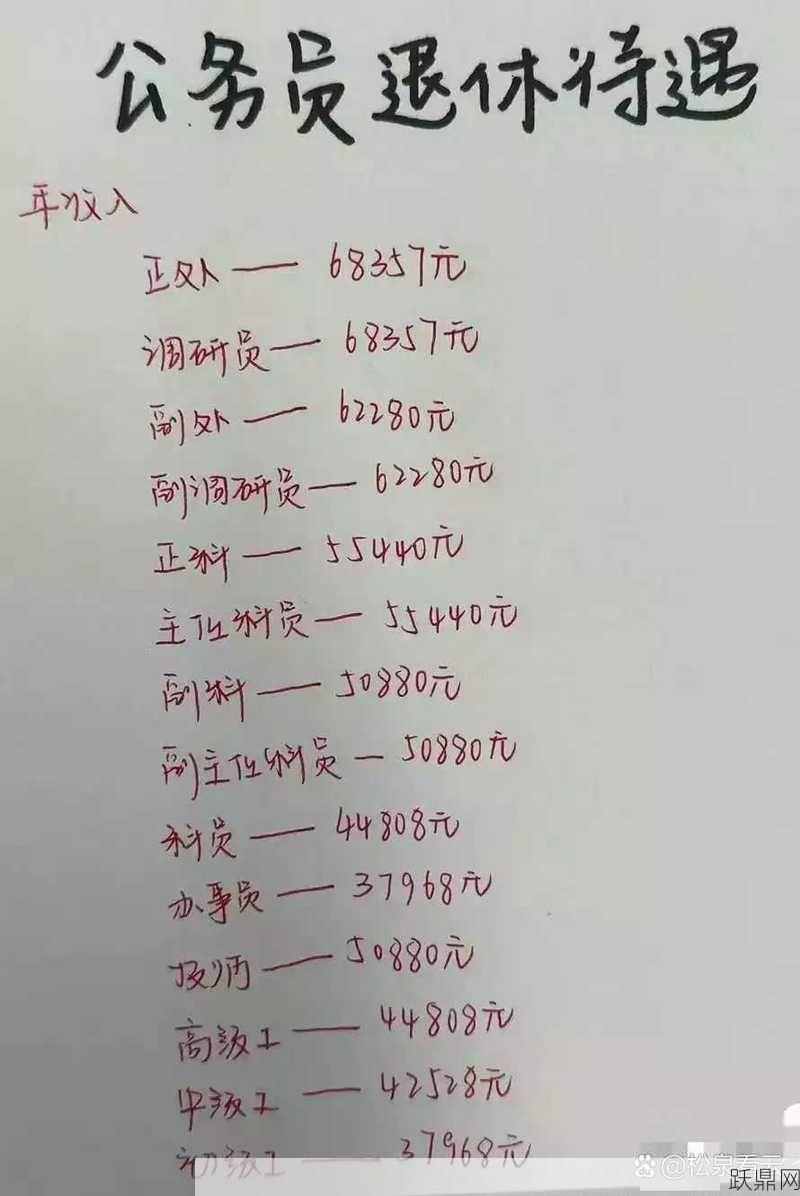 公务员退休待遇
年收入
正处 — 68357元
调研员 — 68357元
副处 — 62280元
副调研员 — 62280元
正科 — 55440元
主任科员 — 55440元
副科 — 50880元
副主任科员 — 50880元
科员 — 44808元
办事员 — 37968元
技师 — 50880元
高级工 — 44808元
中级工 — 42528元
初级工 — 37968元
@松泉看云
跃鼎网